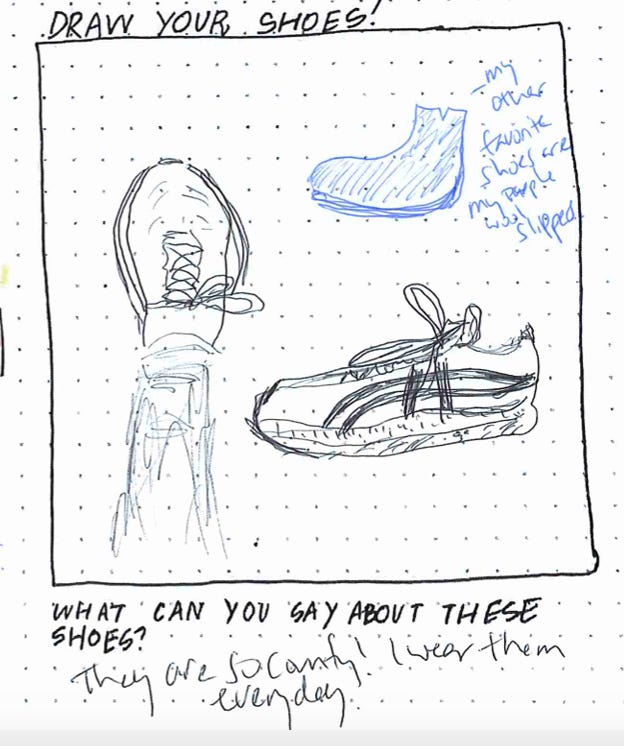 DRAW YOUR SHOES!
-my
other
favorite
shoes are
my purple
wool
slipped
WHAT CAN YOU SAY ABOUT THESE
SHOES?
They are so comfy! I wear them
everyday.